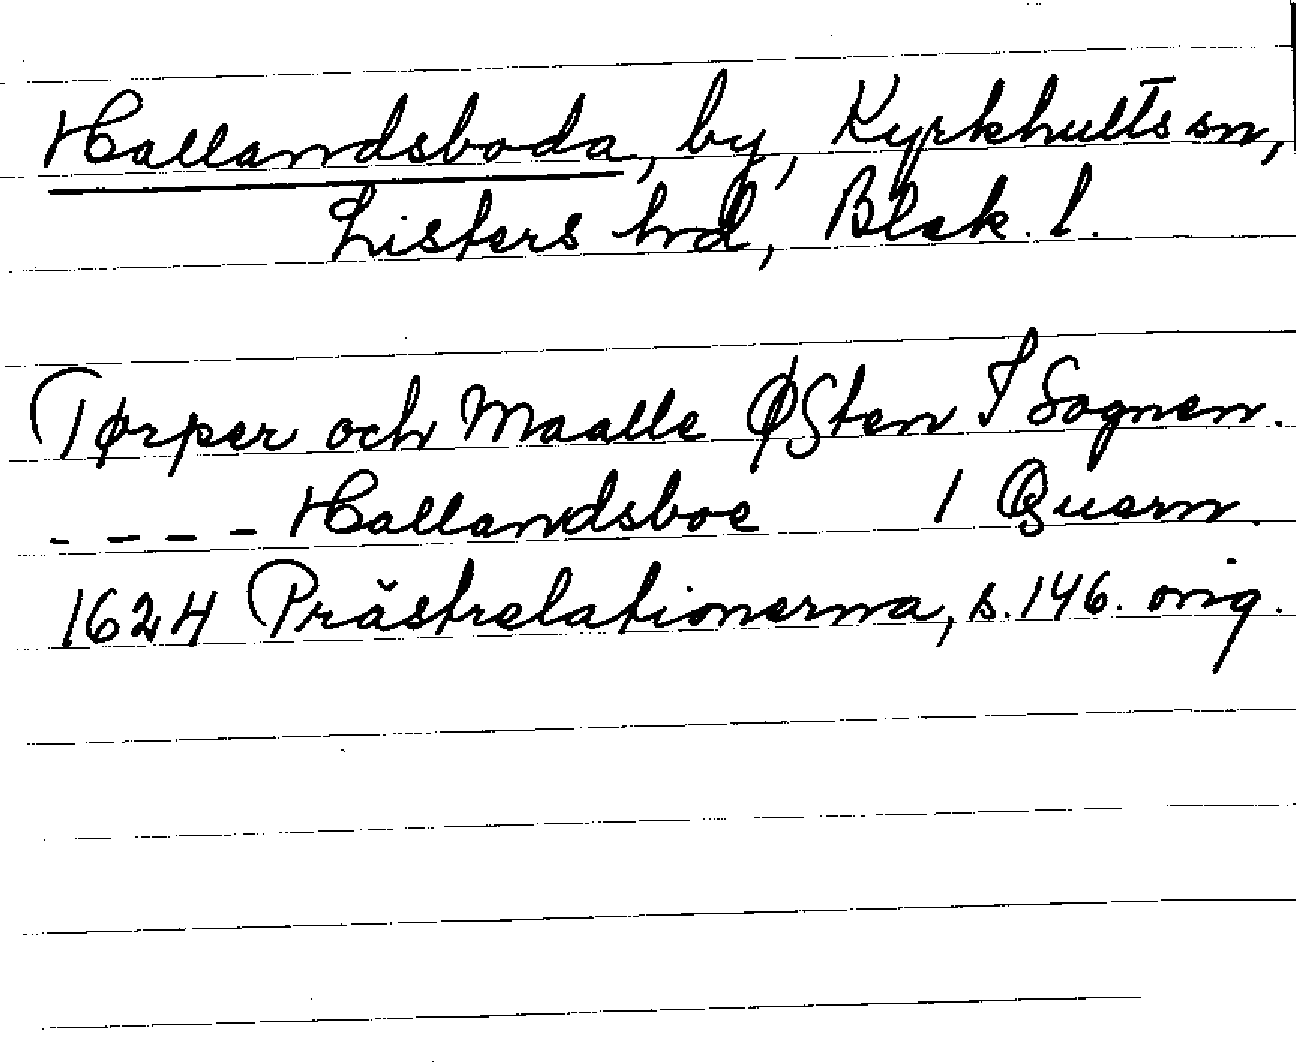 Hallandsboda, by, Kyrkhults sn,
Listers hrd, Blek. l.
Tørper och Maalle ØSten I Sognen.
- - - - Hallandsboe 1 Quern.
1624 Prästrelationerna, s. 146. orig.